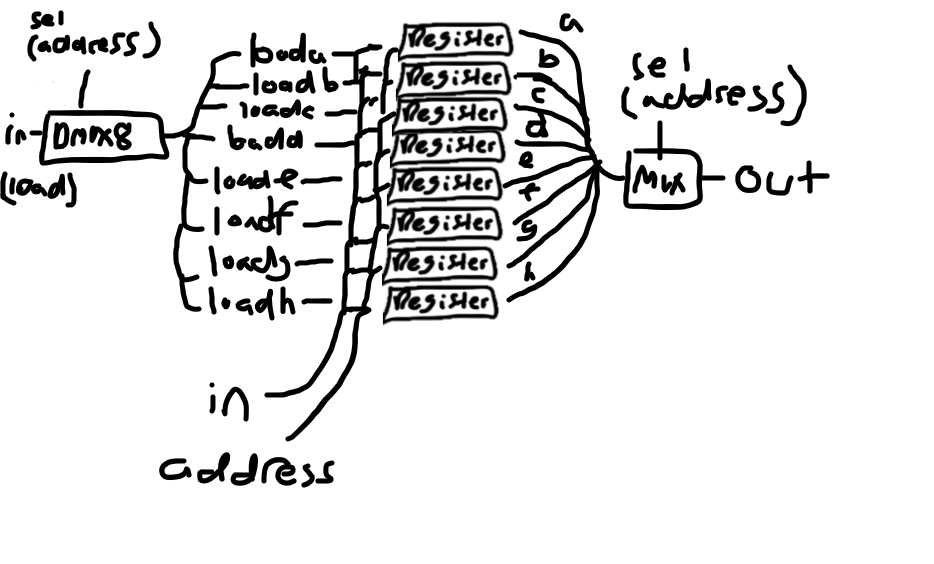 sel
(address)
in
(load)
Dmux8
loada
loadb
loadc
loadd
loade
loadf
loadg
loadh
in
address
Register
Register
Register
Register
Register
Register
Register
Register
a
b
c
d
e
f
g
h
sel
(address)
Mux
out